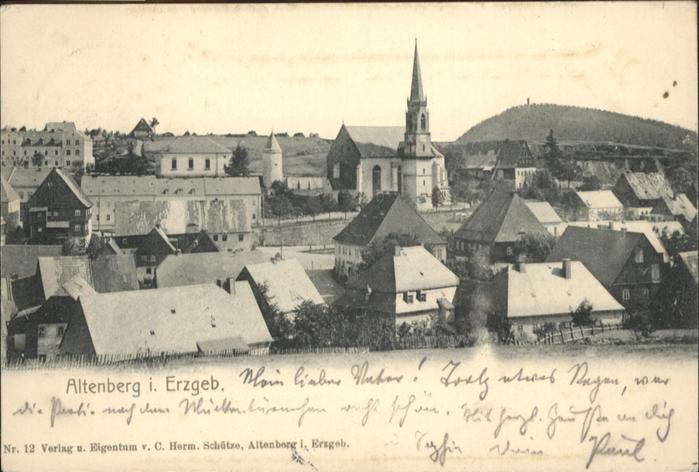 Altenberg i. Erzgeb. Mein lieber Vater! Trotz etwas Regen, war
die Partie nach dem recht schön. Mit herzl. Grüßen an dich
u Sophie dein Paul.
Nr. 12 Verlag u. Eigentum v. C. Herm. Schütze, Altenberg i. Erzgeb.